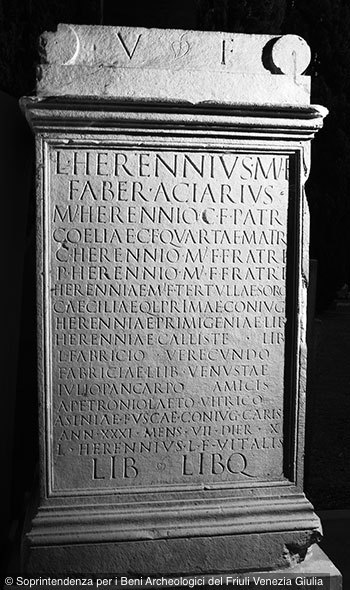 V F
L·HERENNIVS M F
FABER·ACIARIVS
M·HERENNIO·C·F·PATR
COELIAE C F QVARTAE MATR
C HERENNIO·M·F FRATRI
P·HERENNIO·M·F FRATRI
HERENNIAE M F TERTVLLAE SORO
CAECILIAE Q L PRIMAE CONIVG
HERENNIAE PRIMIGENIAE LIB
HERENNIAE CALLISTE LIB
L FABRICIO VERECVNDO
FABRICIAE L LIB VENVSTAE
IVLIO PANCARPO AMICIS
A PETRONIO LAETO VITRICO
ASINIAE FVSCAE CONIVG CARIS
ANN XXXI MENS VII DIER X
L HERENNIVS L F VITALIS
LIB LIBQ
© Soprintendenza per i Beni Archeologici del Friuli Venezia Giulia